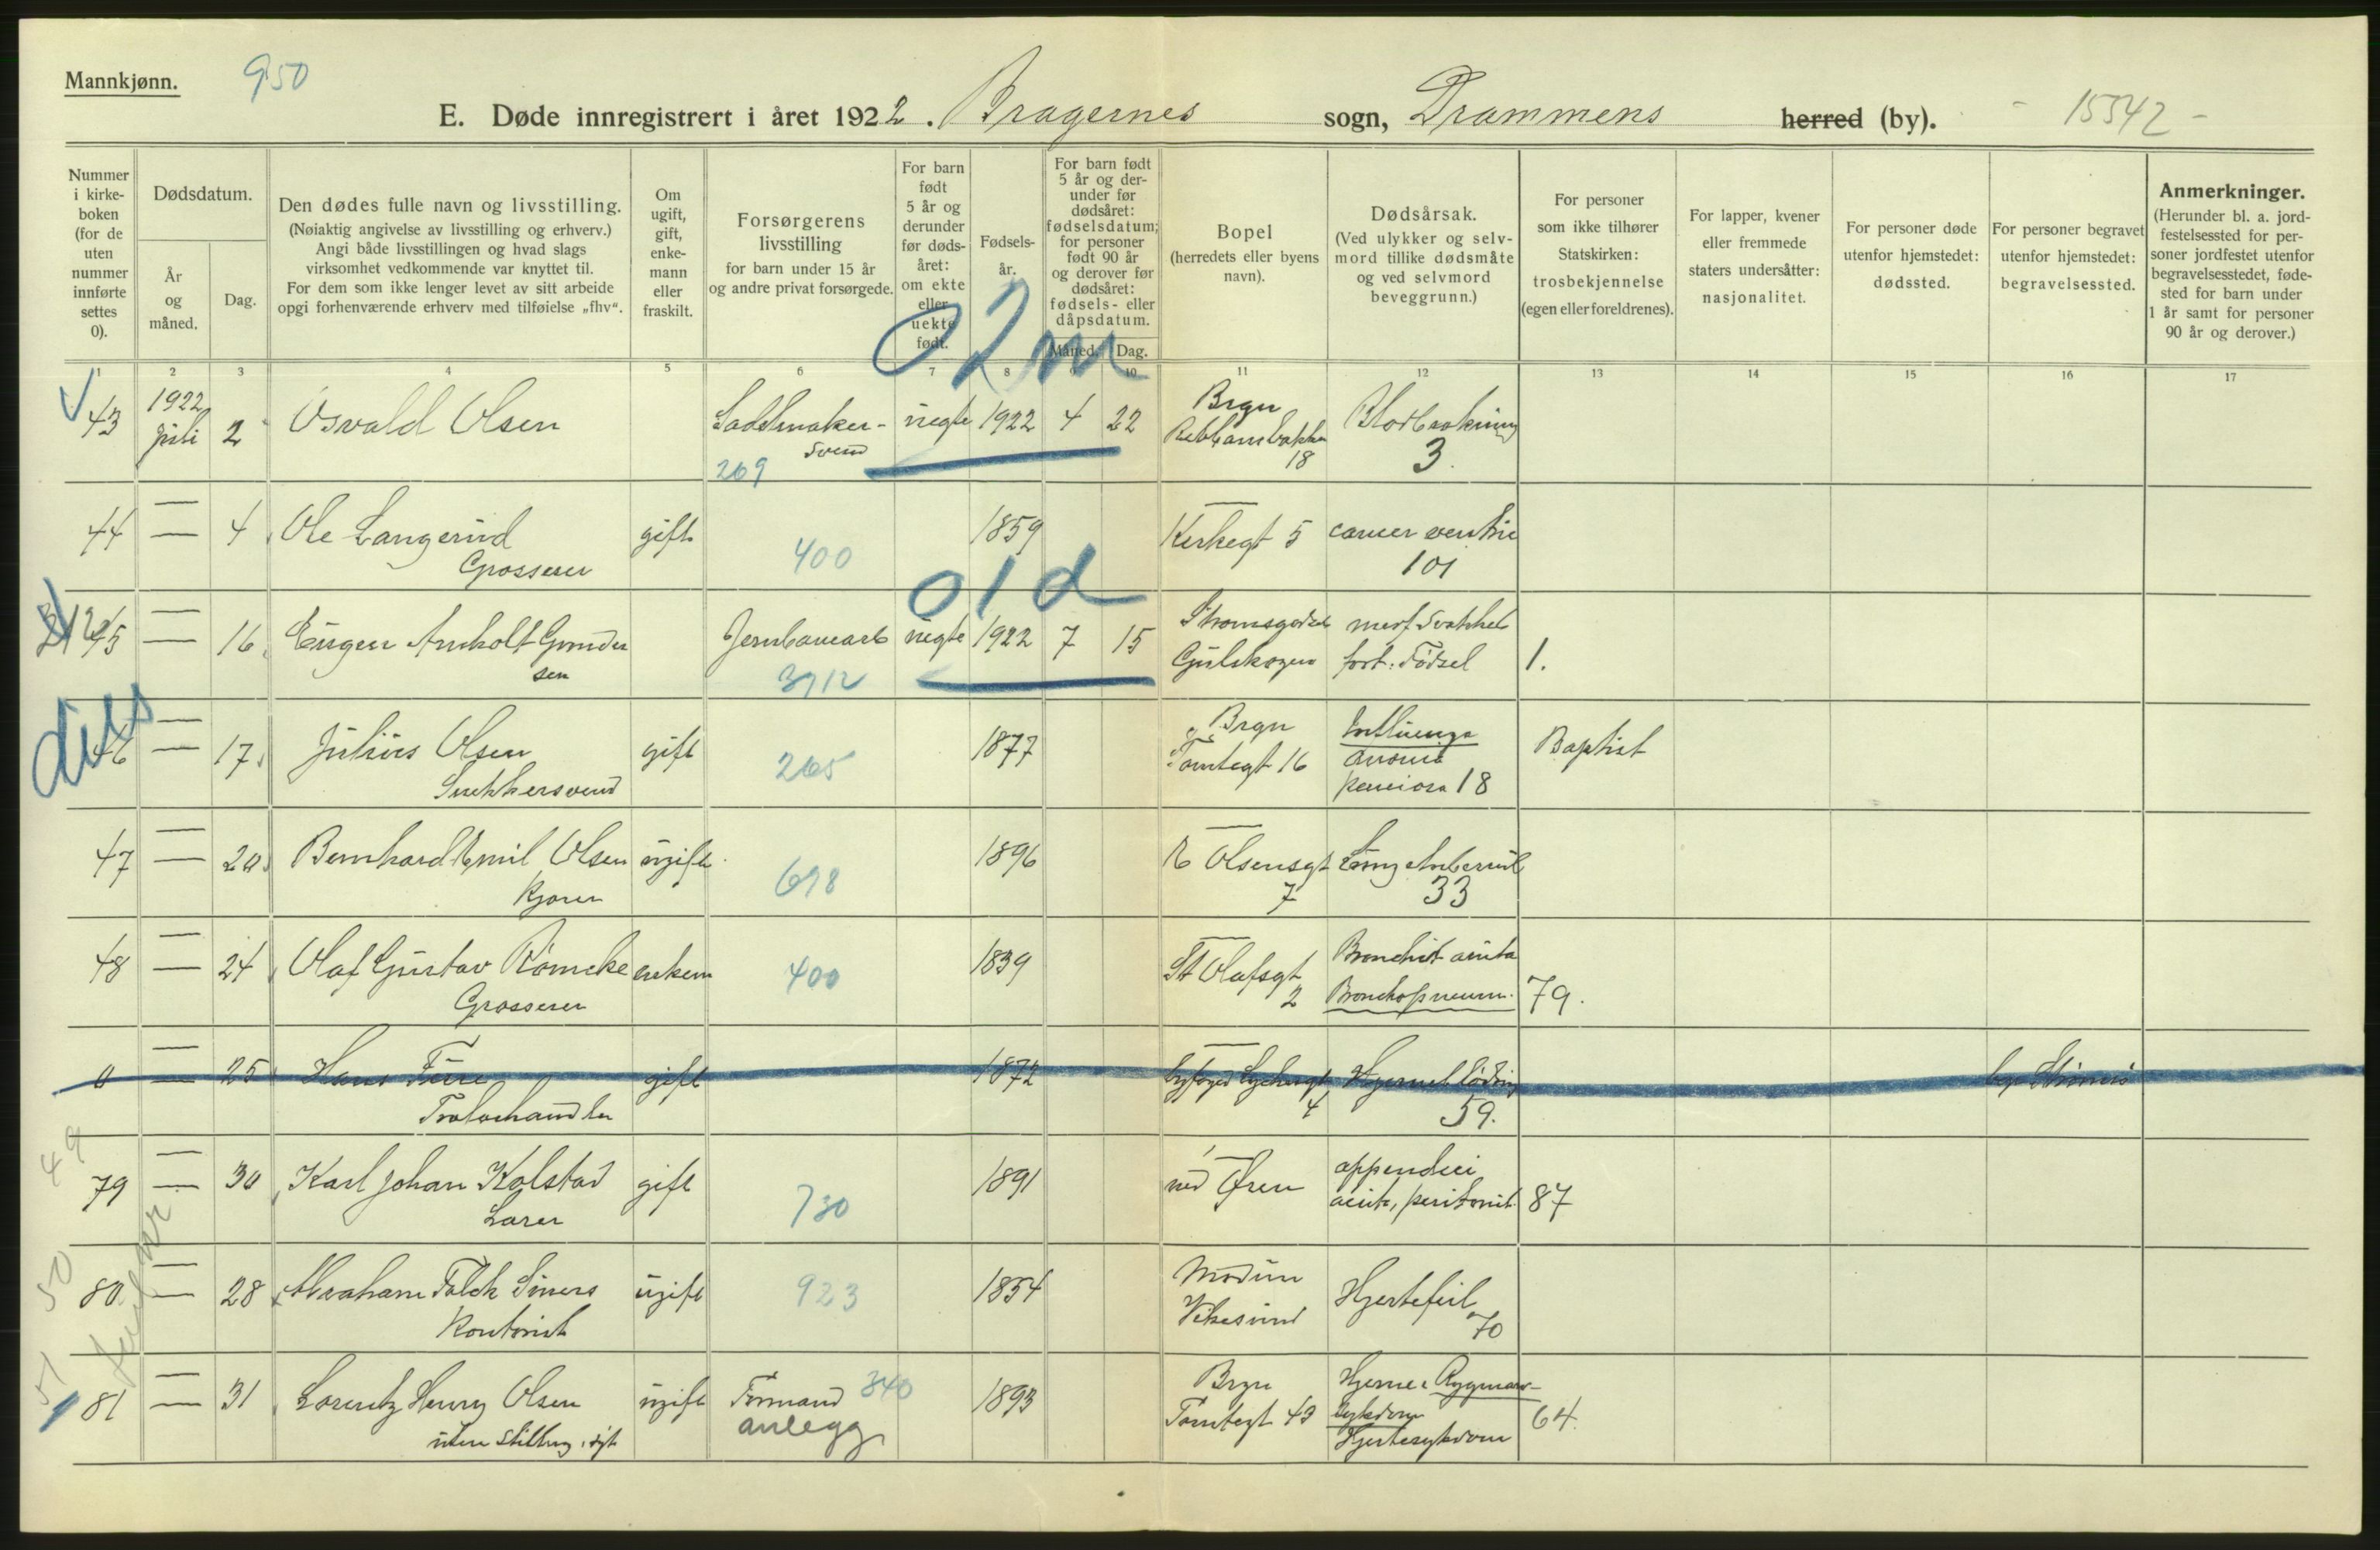 Mannkjønn.
950
E. Døde innregistrert i året 1922. Bragernes sogn, Drammens herred (by).
- 15542 -
Nummer i kirkeboken (for de uten nummer innførte settes 0).
Dødsdatum.
År og måned.
Dag.
Den dødes fulle navn og livsstilling.
(Nøiaktig angivelse av livsstilling og erhverv.)
Angi både livsstillingen og hvad slags
virksomhet vedkommende var knyttet til.
For dem som ikke lenger levet av sitt arbeide
opgi forhenværende erhverv med tilføielse „fhv“.
Om ugift, gift, enkemann eller fraskilt.
Forsørgerens livsstilling
for barn under 15 år
og andre privat forsørgede.
For barn født 5 år og derunder før dødsåret: om ekte eller uekte født.
Fødselsår.
For barn født 5 år og derunder før dødsåret: fødselsdatum; for personer født 90 år og derover før dødsåret: fødsels- eller dåpsdatum.
Måned. Dag.
Bopel
(herredets eller byens navn).
Dødsårsak.
(Ved ulykker og selvmord tillike dødsmåte og ved selvmord beveggrunn.)
For personer som ikke tilhører Statskirken: trosbekjennelse (egen eller foreldrenes).
For lapper, kvener eller fremmede staters undersåtter: nasjonalitet.
For personer døde utenfor hjemstedet: dødssted.
For personer begravet utenfor hjemstedet: begravelsessted.
Anmerkninger.
(Herunder bl. a. jordfestelsessted for personer jordfestet utenfor begravelsesstedet, fødested for barn under 1 år samt for personer 90 år og derover.)
1 2 3 4 5 6 7 8 9 10 11 12 13 14 15 16 17
02m
43 1922 Juli 2 Osvald Olsen Sadelmaker- svend 269 uegte 1922 4 22 Brgn 18 3.
44 — 4 Ole Langerud Grosserer gift 400 1859 Kirkegt 5 cancer ventric 101
01d
45 — 16 Eugen Arnholt Gundersen Jernbanearb 3712 uegte 1922 7 15 Strømsgodset Gulskogen medf Svakhet fort: Fødsel 1.
diss
46 — 17 Julius Olsen Snekkersvend gift 265 1877 Brgn Tomtegt 16 Influenza 18 Baptist
47 — 20 Bernhard Emil Olsen Kjører ugift 698 1896 E Olsensgt 7 33
48 — 24 Olaf Gustav Rømcke Grosserer enkem 400 1839 St Olafsgt 2 Bronchit acuta Bronchopneum. 79.
0 — 25 Hans Furre gift 1872 4 Hjerneblødning 59.
49
79 — 30 Karl Johan Kolstad Lærer gift 730 1891 ned Øren appendici acuta, peritonit 87
50
80 — 28 Abraham Falck Simers Kontorist ugift 923 1854 Modum Vikesund Hjertefeil 70
51
81 — 31 Lorentz Henry Olsen uten stilling, syk ugift Formand 340 anlegg 1893 Brgn Tomtegt 43 Hjerne & Rygmarvsykdom Hjertesykdom 64.